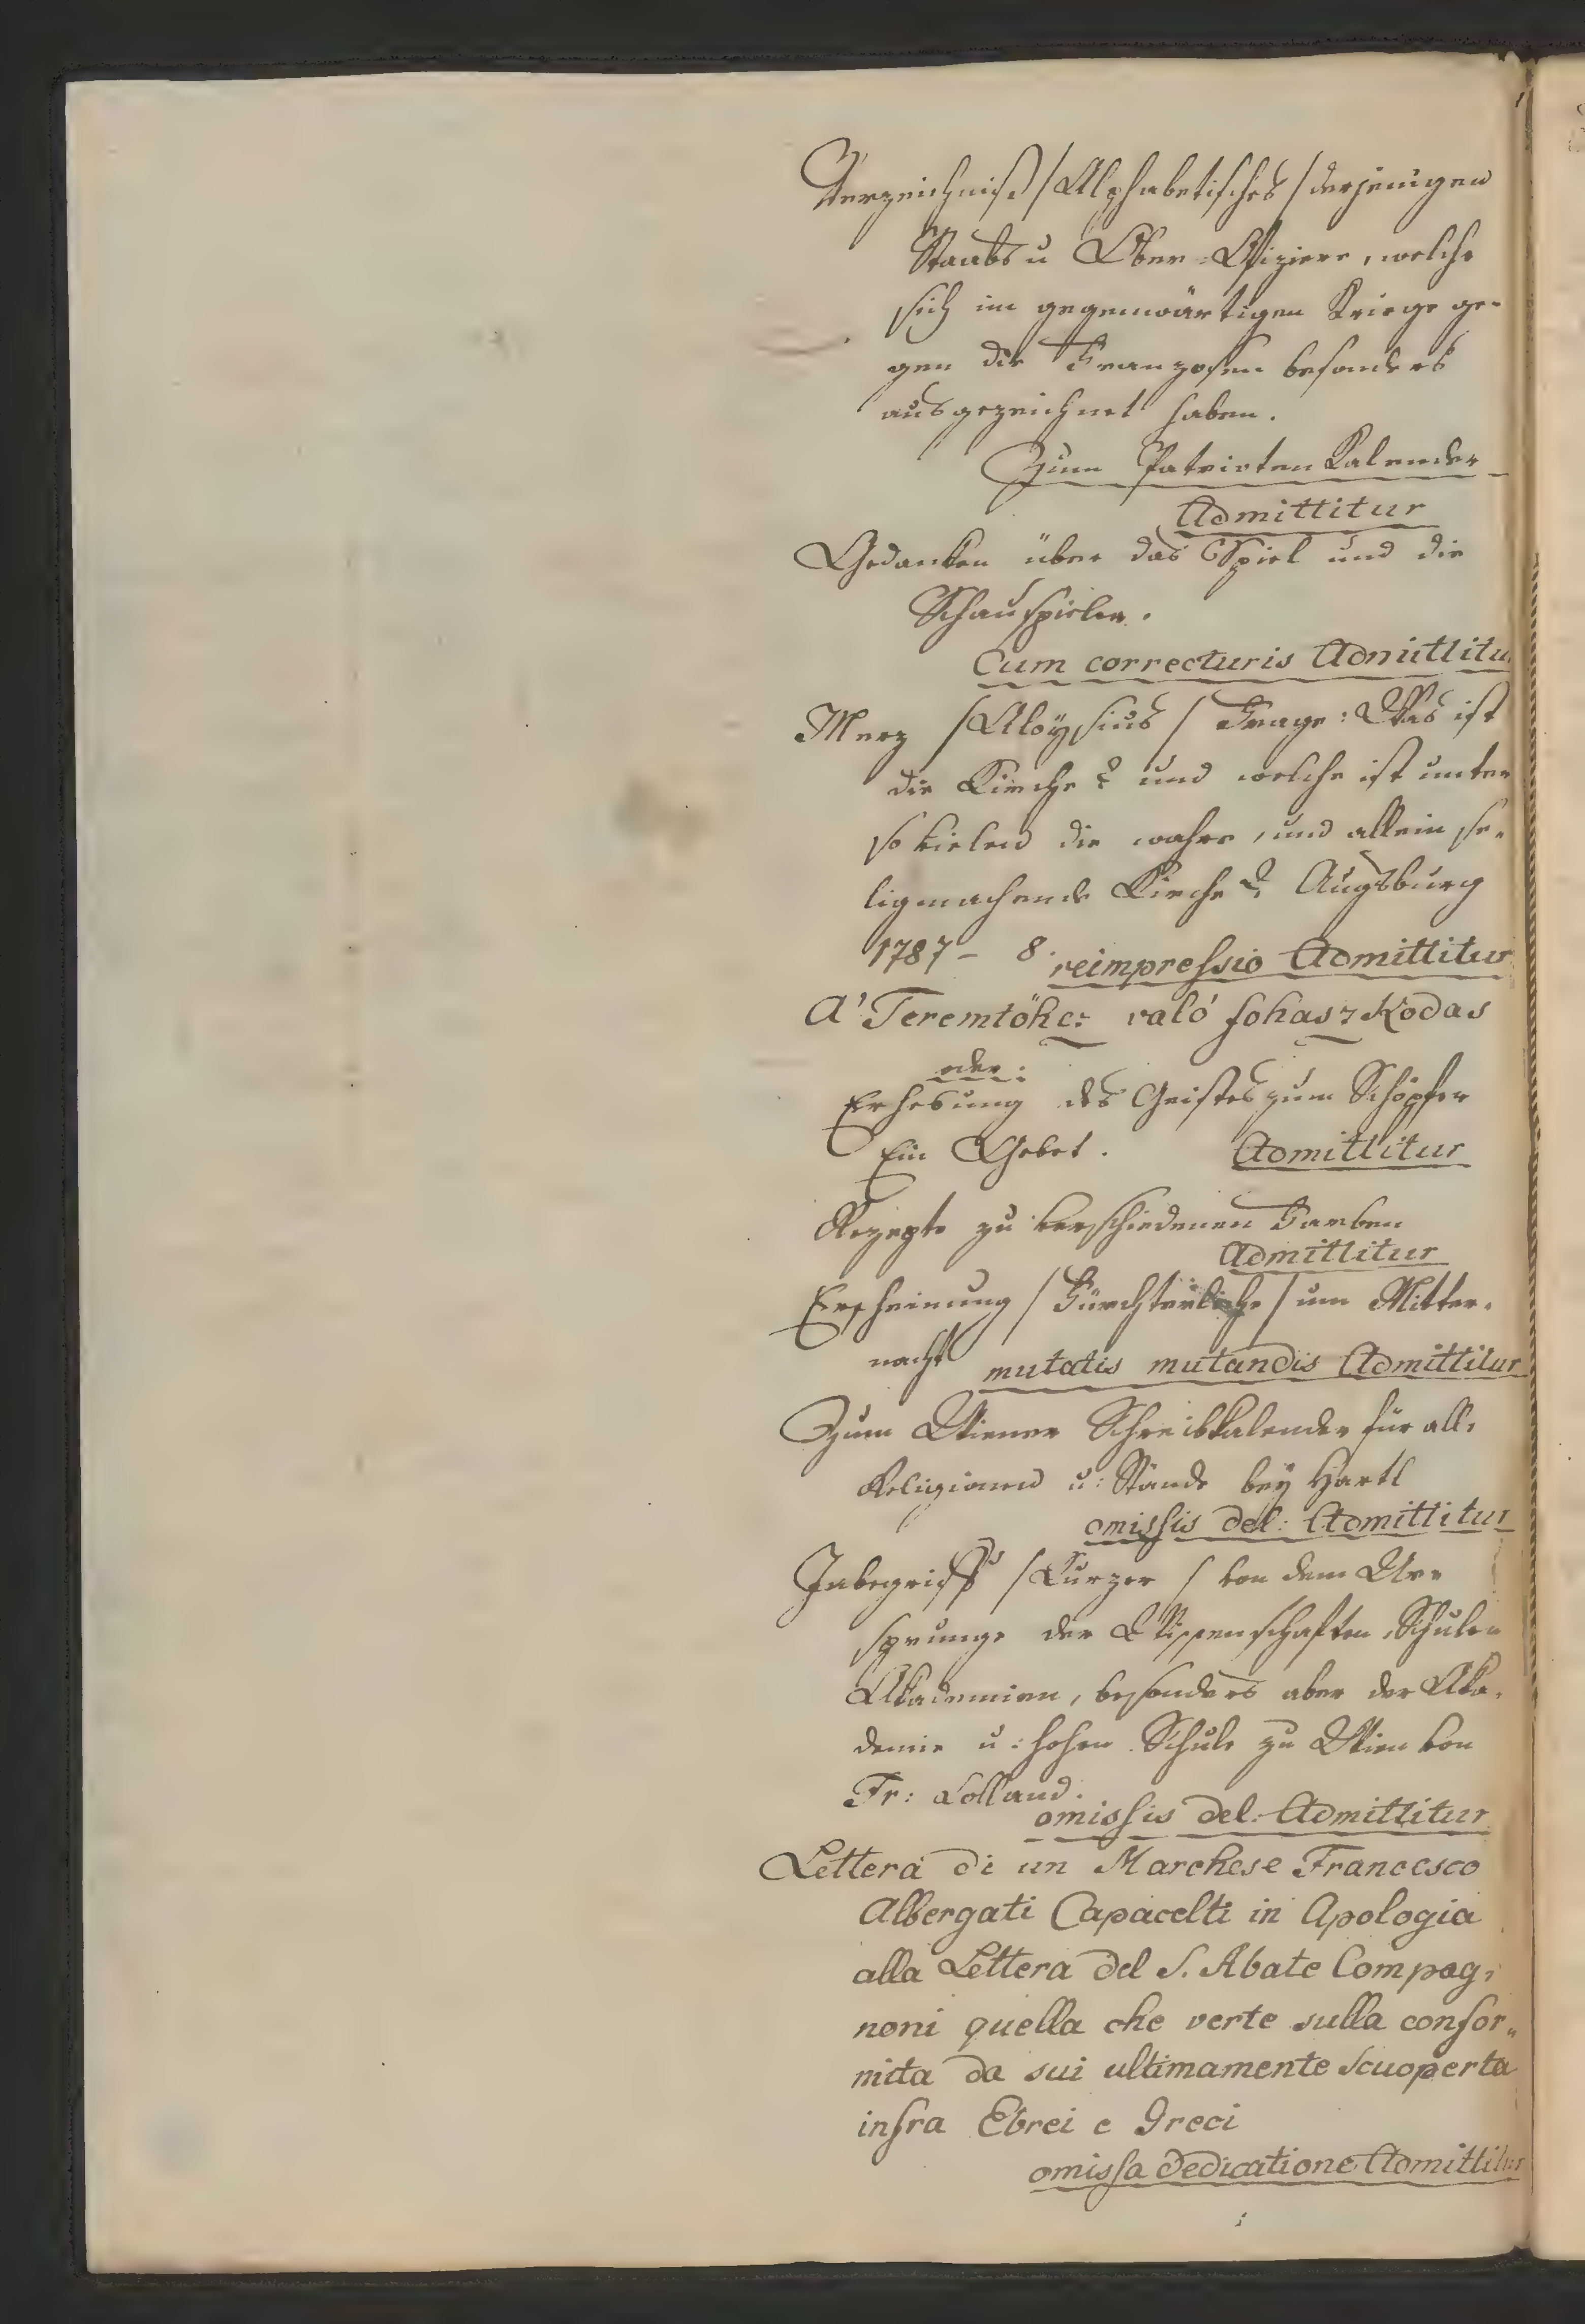 Verzeichniß /Alphabetisches/ derjenigen
Staabs u Ober=Offiziere, welche
sich im gegenwärtigen Kriege ge-
gen die Franzosen besonders
ausgezeichnet haben.
Zum Patrioten Kalender
Admittitur
Gedanken über das Spiel und die
Schauspieler.
Cum correcturis Admittitu
Merz /Aloÿsius/ Frage: Was ist
die Kirche? und welche ist unter
so vielen die wahre, und allein se-
ligmachende Kirche? Augsburg
1787 – 8. reimpressio Admittitur
A' Teremtöhez való fohaszkodas
oder:
Erhebung des Geistes zum Schöpfer
Ein Gebet. Admittitur
Rezepte zu verschiedenen Farben
Admittitur
Erscheinung /Fürchterliche/ um Mitter-
nacht mutatis mutandis Admittitur
Zum Wiener Schreibkalender für alle
Religionen u: Stände beÿ Hartl
omissis del: Admittitur
Inbegriff /Kurzer/ von dem Ur-
sprunge der Wissenschaften, Schulen
Akademien, besonders aber der Aka-
demie u: hohen Schule zu Wien von
Fr: Lolland.
omissis del: Admittitur
Lettera di un Marchese Francesco
Albergati Capacelti in Apologia
alla Lettera del S. Abate Compag-
noni quella che verte sulla confor-
mita da sui ultimamente scuoperta
infra Ebrei e Greci
omissa dedicatione Admittitur